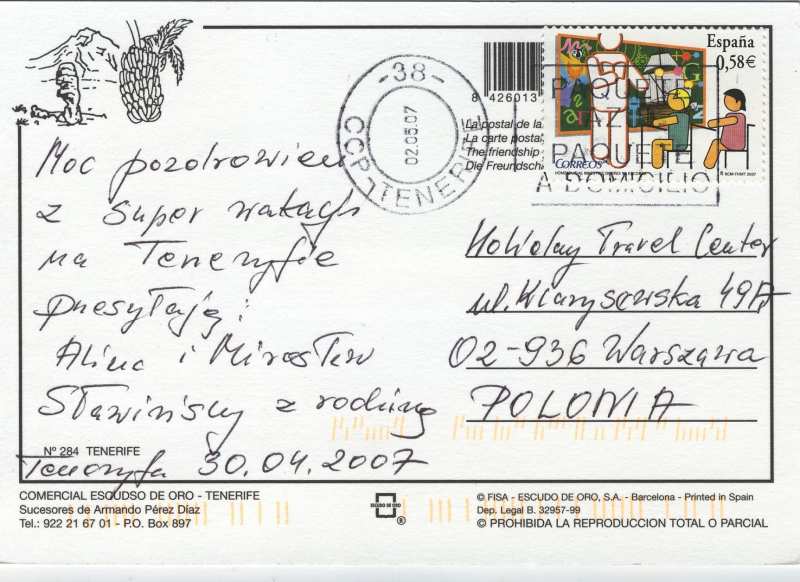 España
0,58€
CORREOS
8 426013
-38-
02.05.07
CCP TENERIFE
PAQUETE
AZ
PAQUETE
A DOMICILIO
La postal de la
La carte postal
The friendship
Die Freundsch
Moc pozdrowień
z super wakacji
na Teneryfie
przesyłają:
Alina i Mirosław
Sławińscy z rodziną
Teneryfa 30.04.2007
Holiday Travel Center
ul. Klarysewska 49A
02-936 Warszawa
POLONIA
Nº 284 TENERIFE
COMERCIAL ESCUDSO DE ORO - TENERIFE
Sucesores de Armando Pérez Díaz
Tel.: 922 21 67 01 - P.O. Box 897
ESCUDO DE ORO
®
© FISA - ESCUDO DE ORO, S.A. - Barcelona - Printed in Spain
Dep. Legal B. 32957-99
© PROHIBIDA LA REPRODUCCION TOTAL O PARCIAL